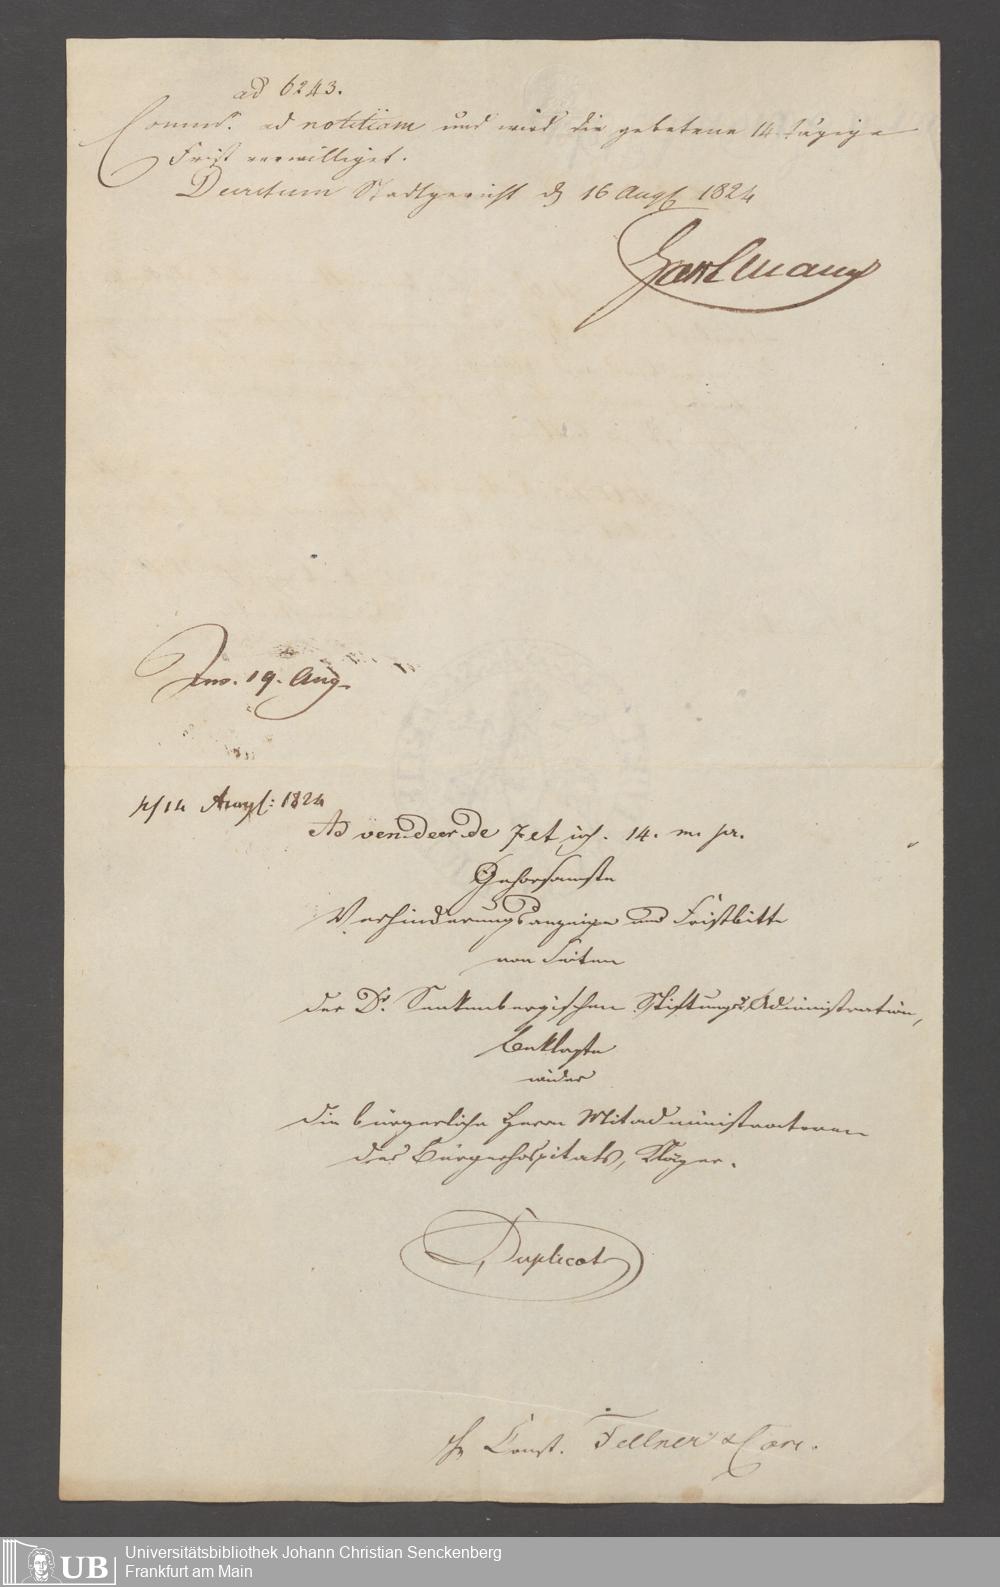 ad 6243.
Commr. ad notitiam und wird die gebetene 14 tägige
Frist verwilliget.
Decretum Stadtgericht d 16 Augst 1824
Ins. 19. Aug.
14 Augst: 1824
Ad ven. decr. de 7 et 14. m. pr.
Gehorsamste
Verhinderungsanzeige und Fristbitte
von Seiten
der Dr. Senkenbergischen Stiftungs Administration,
Beklagte
wider
die bürgerliche Herrn Mitadministratoren
des Bürgerhospitals, Kläger.
Duplicat
Const. Fellner &
Universitätsbibliothek Johann Christian Senckenberg
Frankfurt am Main
UB